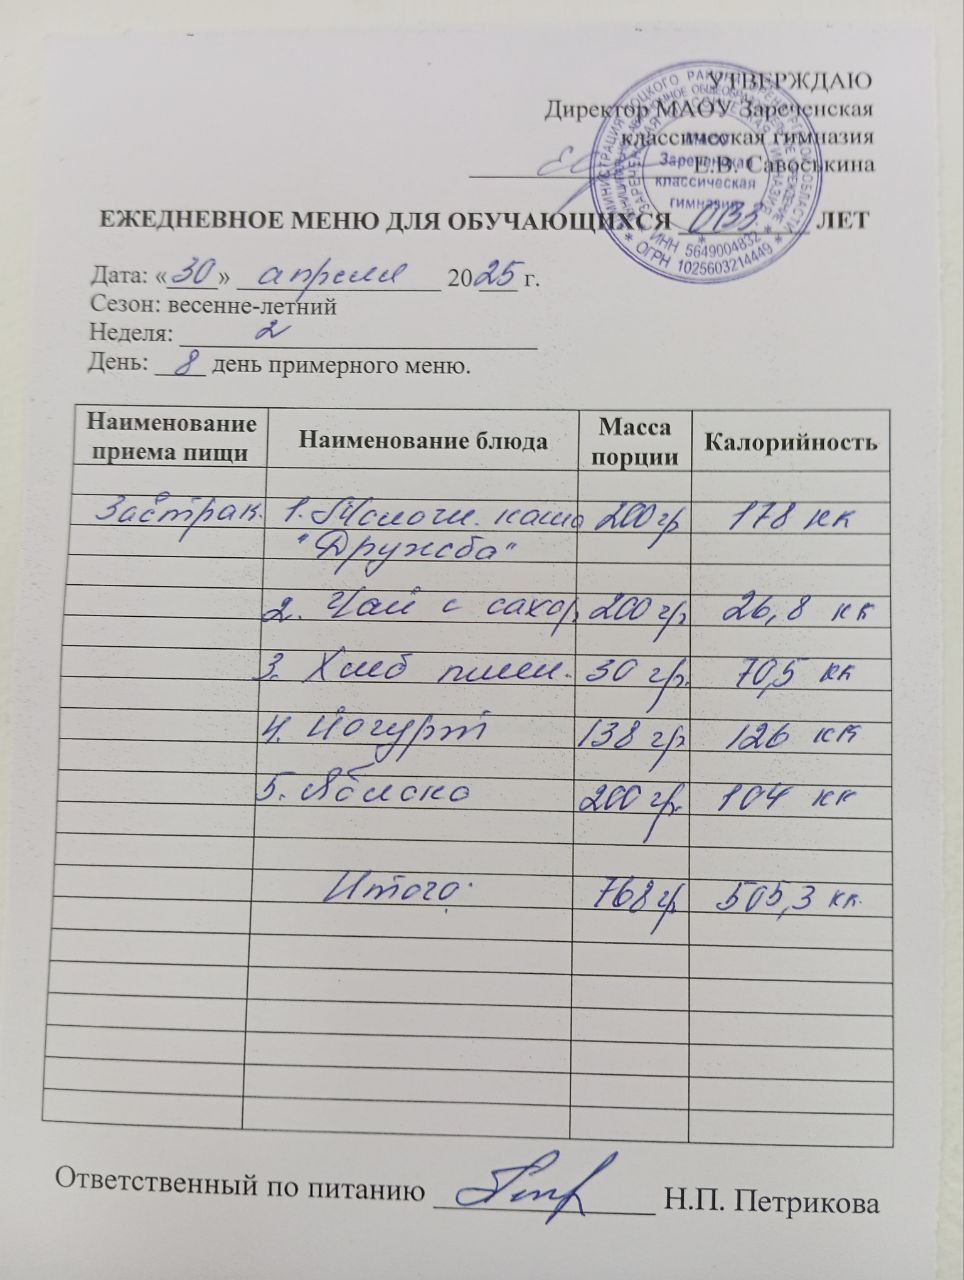 УТВЕРЖДАЮ
Директор МАОУ Зареченская
классическая гимназия
Е.В. Савоськина
МАОУ
Зареченская
классическая
гимназия
ИНН 5649004832
ОГРН 1025603214449
ЕЖЕДНЕВНОЕ МЕНЮ ДЛЯ ОБУЧАЮЩИХСЯ ОВЗ ЛЕТ
Дата: «30» апреля 2025 г.
Сезон: весенне-летний
Неделя: 2
День: 8 день примерного меню.
Наименование приема пищи Наименование блюда Масса порции Калорийность
Завтрак. 1. Молочн. каша 200 гр 178 кк
"Дружба"
2. Чай с сахар. 200 гр 26,8 кк
3. Хлеб пшен. 30 гр. 70,5 кк
4. Йогурт 138 гр 126 кк
5. Яблоко 200 гр. 104 кк
Итого: 768 гр 505,3 кк.
Ответственный по питанию Н.П. Петрикова